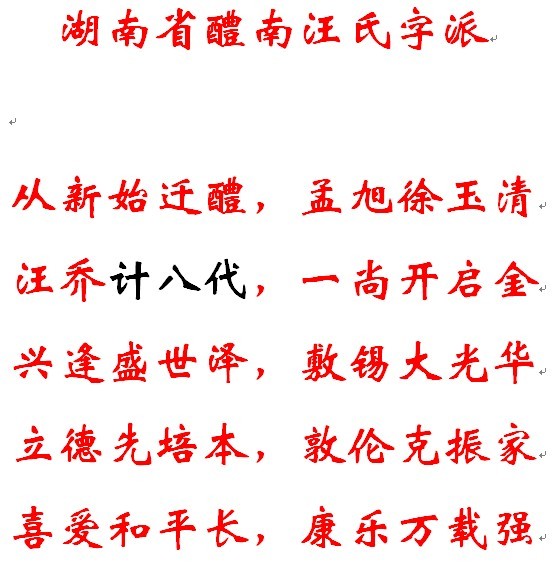 湖南省醴南汪氏字派
从新始迁醴，孟旭徐玉清
汪乔计八代，一尚开启金
兴逢盛世泽，敷锡大光华
立德先培本，敦伦克振家
喜爱和平长，康乐万载强